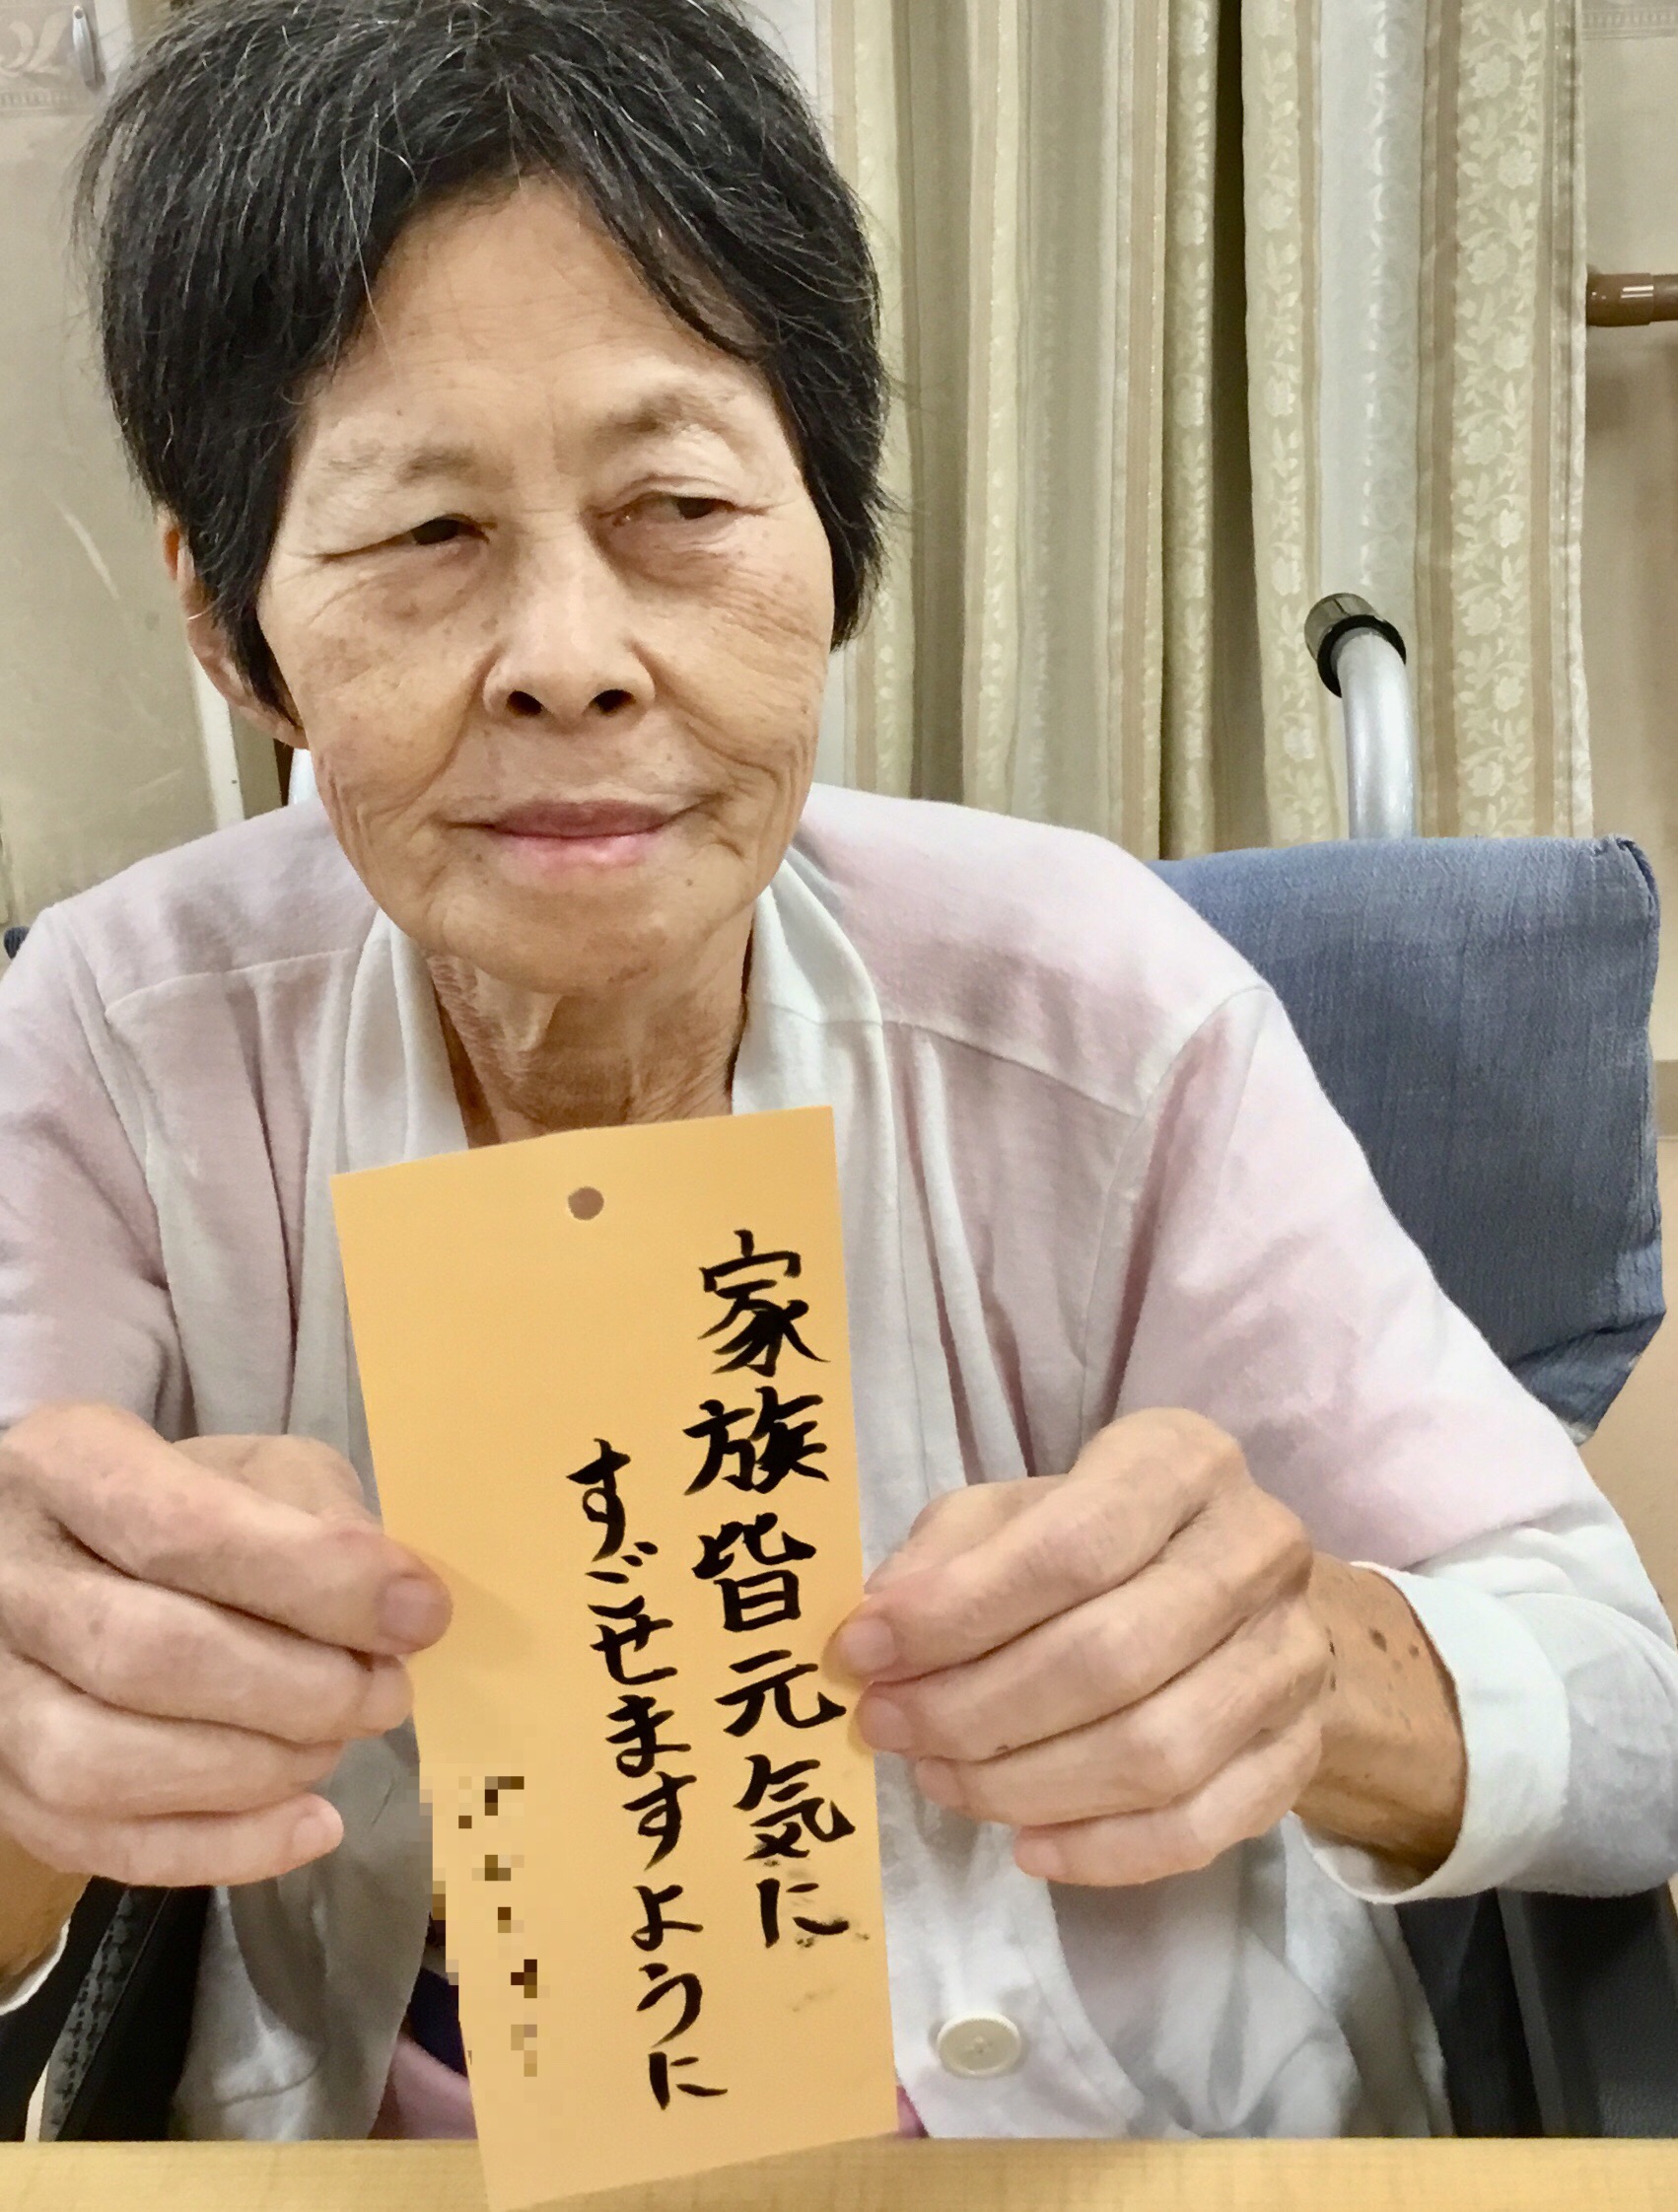 家族皆元気に
すごせますように